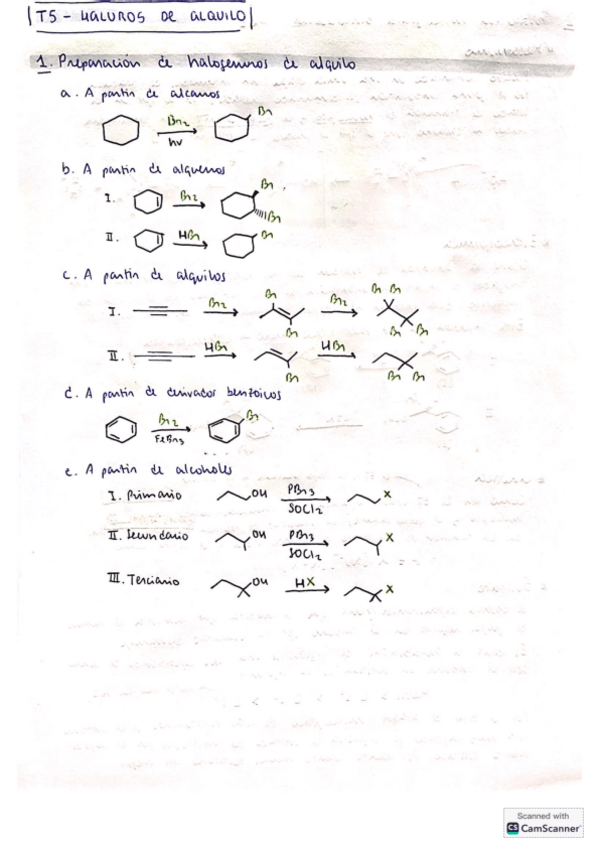 T5 - HALUROS DE ALQUILO
1. Preparación de halogenuros de alquilo
a. A partir de alcanos
Br2
hν
Br
b. A partir de alquenos
I.
Br2
Br
Br
II.
HBr
Br
c. A partir de alquilos
I.
Br2
Br
Br
Br2
Br Br
Br Br
II.
HBr
Br
HBr
Br Br
d. A partir de derivados benzoicos
Br2
FeBr3
Br
e. A partir de alcoholes
I. Primario
OH
PBr3
SOCl2
X
II. Secundario
OH
PBr3
SOCl2
X
III. Terciario
OH
HX
X
Scanned with
CS CamScanner